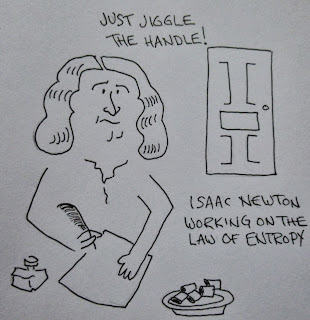 JUST JIGGLE
THE HANDLE!
ISAAC NEWTON
WORKING ON THE
LAW OF ENTROPY